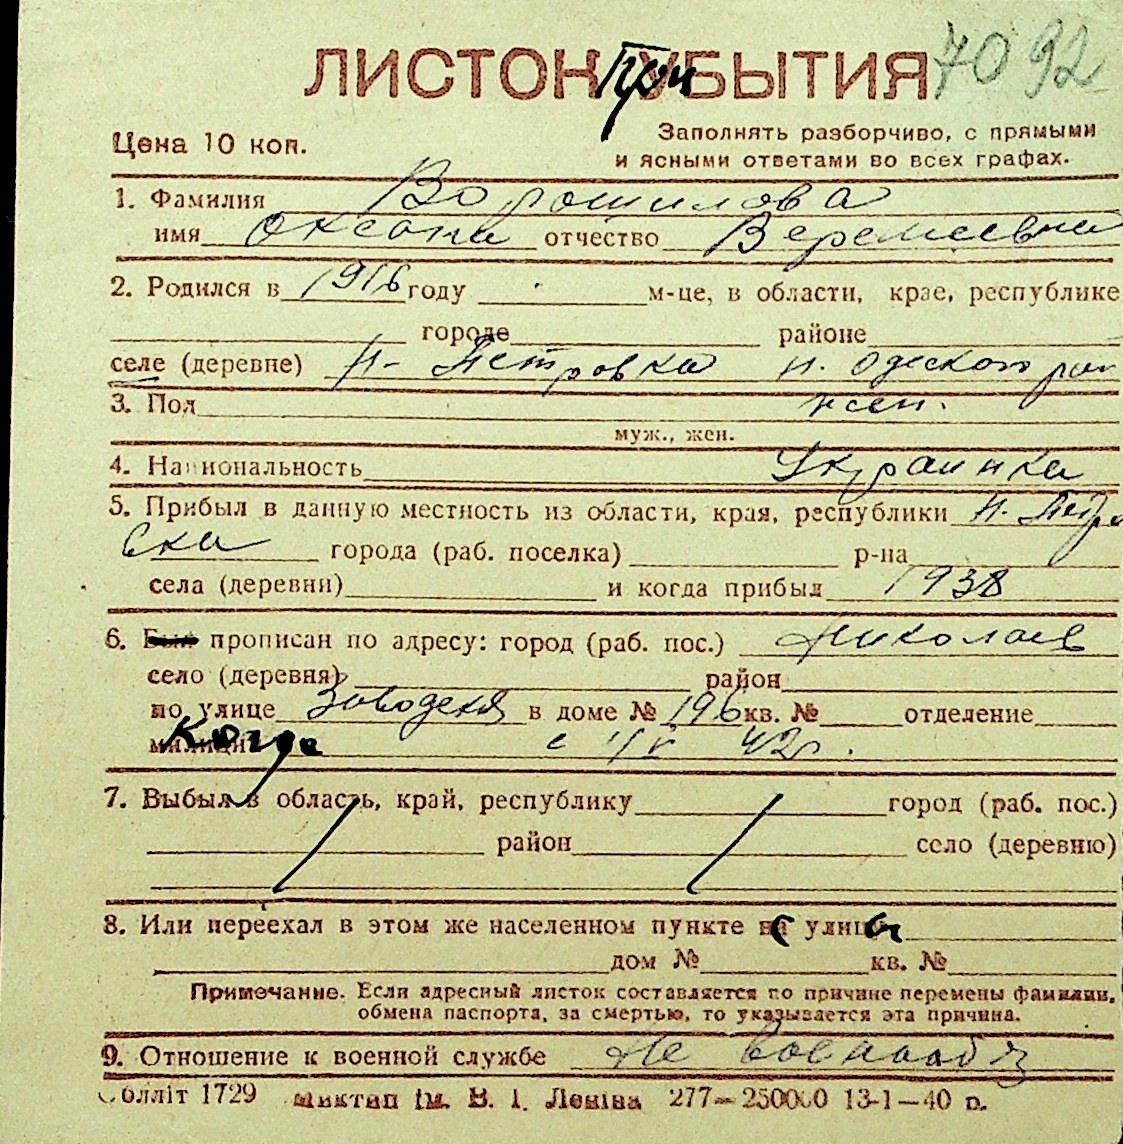 7092
ЛИСТОК При УБЫТИЯ
Цена 10 коп.
Заполнять разборчиво, с прямыми
и ясными ответами во всех графах.
1. Фамилия Ворошилова
имя Оксана отчество Веремеевна
2. Родился в 1916 году м-це, в области, крае, республике
городе районе
селе (деревне) Н-Петровка Н. Одеского рай
3. Пол жен.
муж., жен.
4. Национальность Украинка
5. Прибыл в данную местность из области, края, республики Н. Петро
вка города (раб. поселка) р-на
села (деревни) и когда прибыл 1938
6. Был прописан по адресу: город (раб. пос.) Николаев
село (деревня) район
по улице в доме № 196 кв. № отделение
милиции Когда с 42г.
7. Выбыл в область, край, республику город (раб. пос.)
район село (деревню)
8. Или переехал в этом же населенном пункте с улицы
дом № кв. №
Примечание. Если адресный листок составляется по причине перемены фамилии,
обмена паспорта, за смертью, то указывается эта причина.
9. Отношение к военной службе Не военнооб
облліт 1729 Миктип ім. В. І. Леніна 277—250000 13-1—40 р.